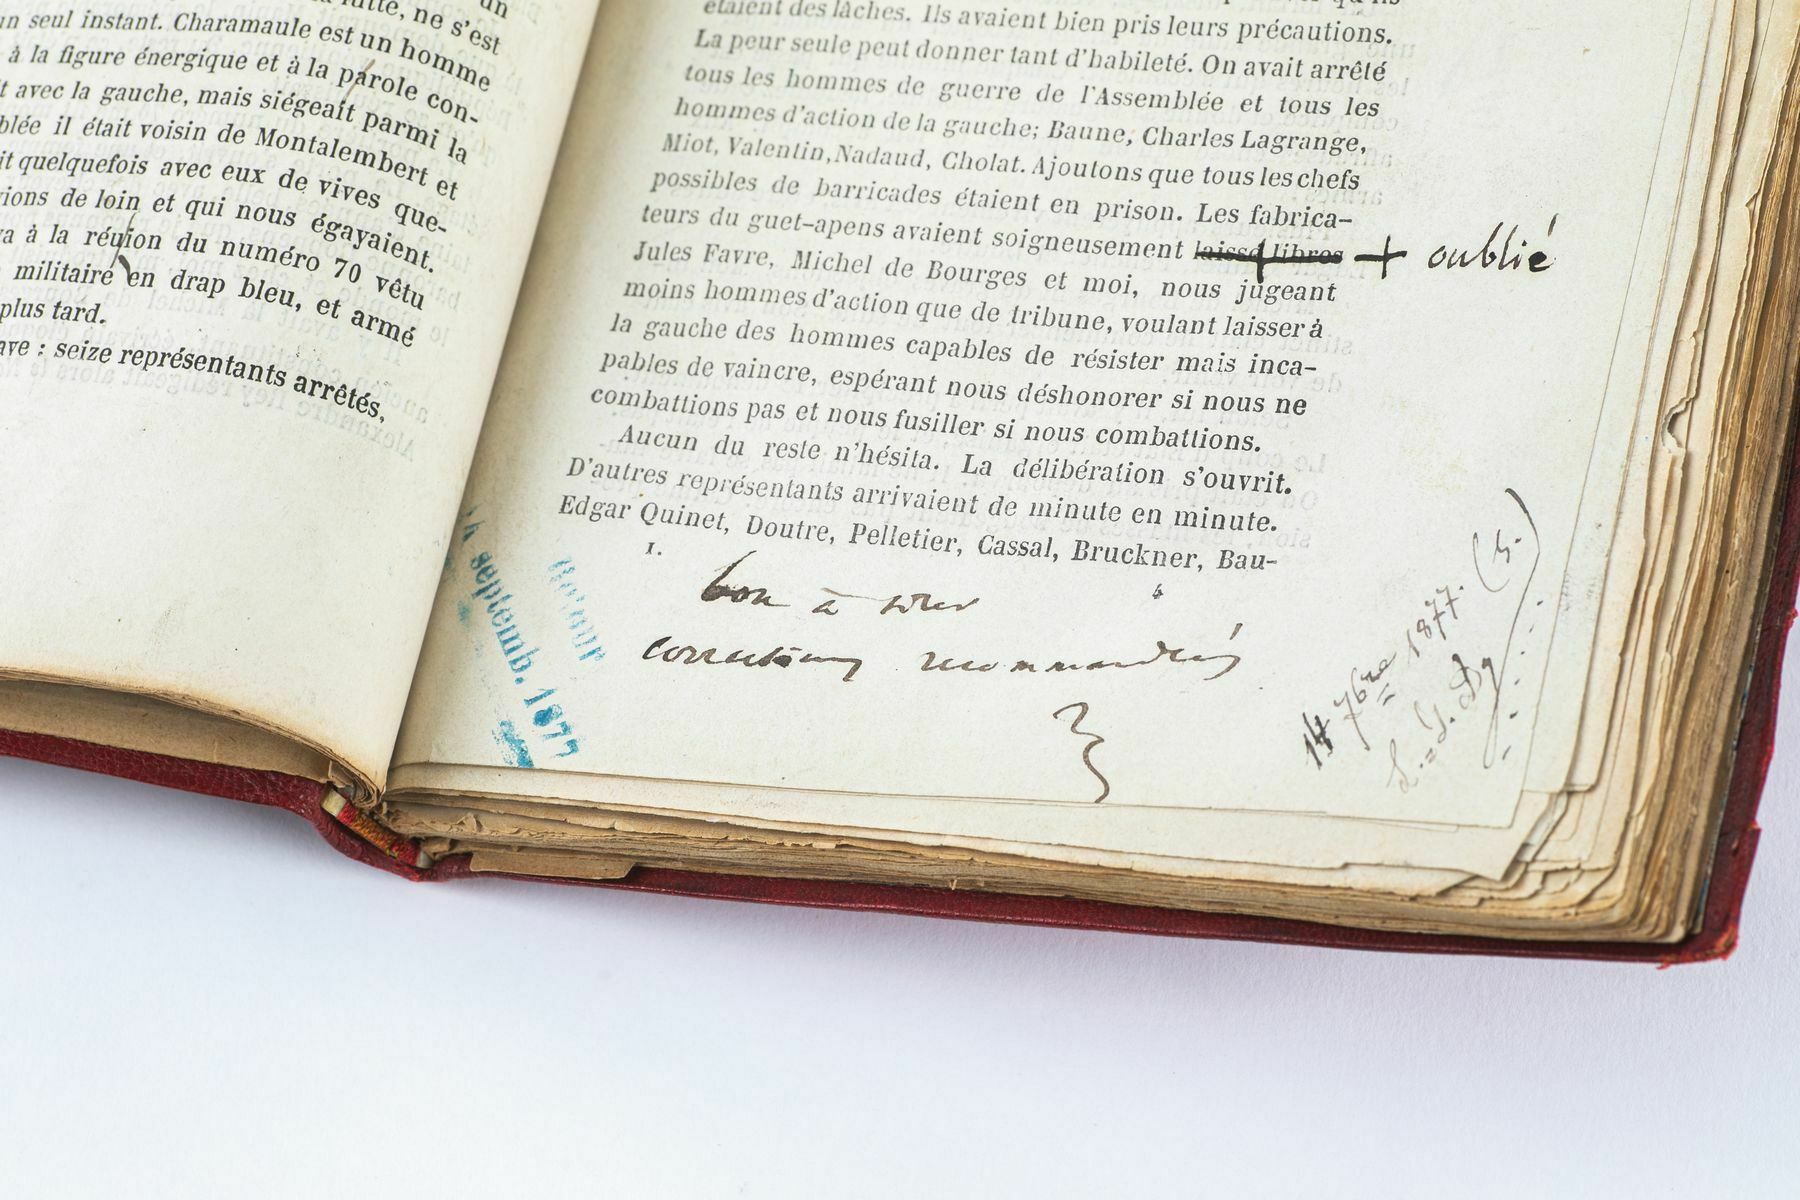 un
lutte, ne s'est
un seul instant. Charamaule est un homme
à la figure énergique et à la parole con-
t avec la gauche, mais siégeait parmi la
blée il était voisin de Montalembert et
it quelquefois avec eux de vives que-
ions de loin et qui nous égayaient.
a à la réunion du numéro 70 vêtu
militaire en drap bleu, et armé
plus tard.
ave : seize représentants arrêtés,
étaient des lâches. Ils avaient bien pris leurs précautions.
La peur seule peut donner tant d'habileté. On avait arrêté
tous les hommes de guerre de l'Assemblée et tous les
hommes d'action de la gauche; Baune, Charles Lagrange,
Miot, Valentin, Nadaud, Cholat. Ajoutons que tous les chefs
possibles de barricades étaient en prison. Les fabrica-
teurs du guet-apens avaient soigneusement laissé libres + oublié
Jules Favre, Michel de Bourges et moi, nous jugeant
moins hommes d'action que de tribune, voulant laisser à
la gauche des hommes capables de résister mais inca-
pables de vaincre, espérant nous déshonorer si nous ne
combattions pas et nous fusiller si nous combattions.
Aucun du reste n'hésita. La délibération s'ouvrit.
D'autres représentants arrivaient de minute en minute.
Edgar Quinet, Doutre, Pelletier, Cassal, Bruckner, Bau-
I. 4
bon à tirer
corrections recommandées
septemb. 1877
14 7bre 1877. (5.